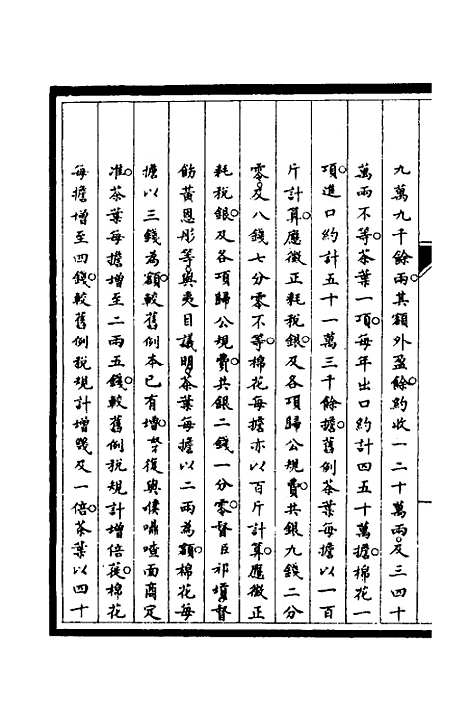 九萬九千餘兩其額外盈餘約收一二十萬兩及三四十
萬兩不等茶葉一項每年出口約計四五十萬擔棉花一
項進口約計五十一萬三千餘擔舊例茶葉每擔以一百
斤計算應徵正耗稅銀及各項歸公規費共銀九錢二分
零及八錢七分零不等棉花每擔亦以百斤計算應徵正
耗稅銀及各項歸公規費共銀二錢一分零督臣祁𡎴督
飭黃恩彤等與夷目議明茶葉每擔以二兩為額棉花每
擔以三錢為額較舊例本已有增奴復與僕嘣喳面商定
准茶葉每擔增至二兩五錢較舊例稅規計增倍蓰棉花
每擔增至四錢較舊例稅規計增幾及一倍茶葉以四十